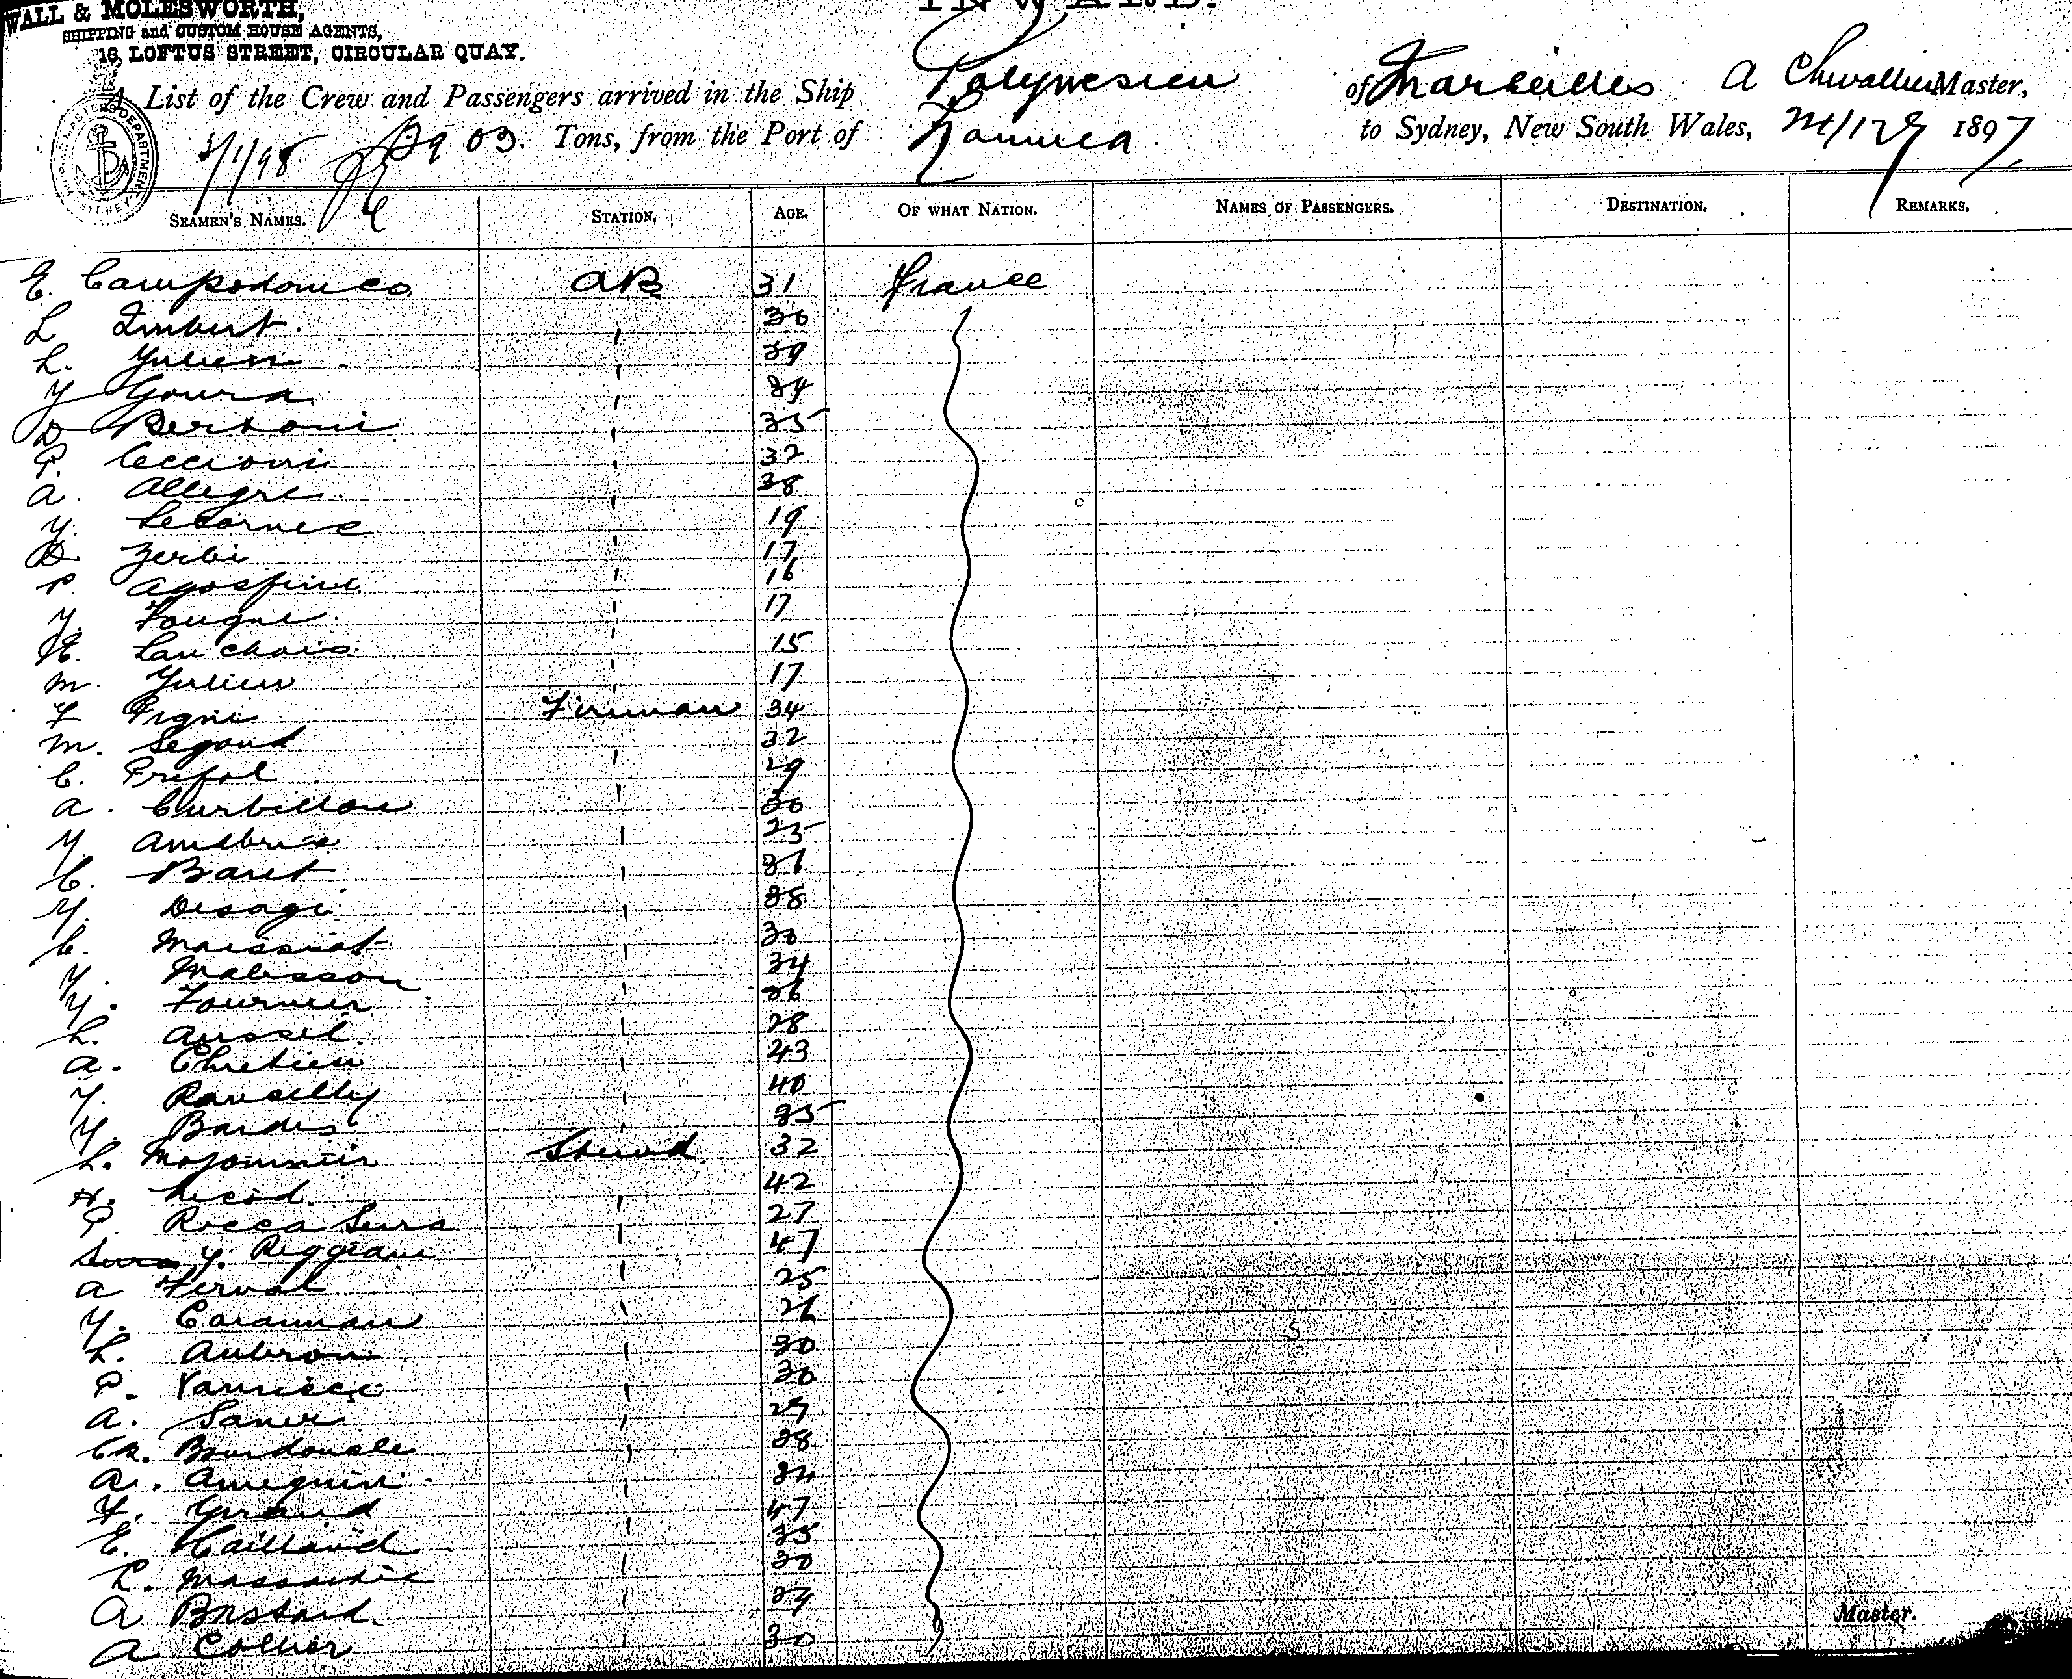 WALL & MOLESWORTH,
SHIPPING and CUSTOM HOUSE AGENTS,
16, LOFTUS STREET, CIRCULAR QUAY.
INWARD.
A List of the Crew and Passengers arrived in the Ship Polynesien of Marseilles A Chevallier Master,
5/1/98 Tons, from the Port of Noumea to Sydney, New South Wales, 1897
SEAMEN'S NAMES. STATION. AGE. OF WHAT NATION. NAMES OF PASSENGERS. DESTINATION. REMARKS.
E. Campodonico AB 31 France
L Imbert 36
L. Julien 39
Y Goura 34
D Bertoni 35
P. Ceccioni 32
A. Allegre 38
Y. 19
D. Zerbi 17
P. Agostini 16
Y. Fougue 17
E. 15
M. Julien 17
F Pigni Fireman 34
M. Segond 32
C. Prefol 29
A. Curbillon 36
Y 25
C. Baret 36
Y. Desagi 38
C. Maissiat 30
Y. Malisson 34
Y. Fournier 36
L. Aussel 28
A. Chretien 43
Y. Ravailly 40
Y Bardes 35
L. Mojournier Steward 32
H. 42
P. Rocca Serra 27
Y. Reggiani 47
A Ferval 25
Y. 26
L. Aubron 30
P. 30
A. 29
Ch. Bourdoncle 38
A. Ameguin 34
F. Giraud 47
E. Caillaud 35
L. 30
A Brissard 34
A Collier 30
Master.